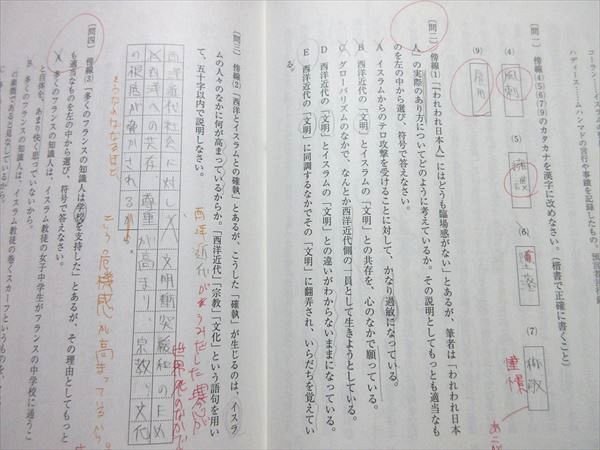 コーラン・イスラム
ハディース…ムハンマドの言行や事蹟を記録したもの。預言者言行録
〔問一〕 傍線(4)(5)(6)(7)(9)のカタカナを漢字に改めなさい。(楷書で正確に書くこと)
(4)
風刺
(5)
(6)
堕落
(7)
称敬
憧憬
あこ
(9)
〔問二〕 傍線(1)「われわれ日本人』にはどうも臨場感がない」とあるが、筆者は「われわれ日本
人」の実際のあり方についてどのように考えているか。その説明としてもっとも適当なも
のを左の中から選び、符号で答えなさい。
A イスラムからのテロ攻撃を受けることに対して、かなり過敏になっている。
B 西洋近代の「文明」とイスラムの「文明」との共存を、心のなかで願っている。
C グローバリズムのなかで、なんとか西洋近代側の一員として生きようとしている。
D 西洋近代の「文明」とイスラムの「文明」との違いがわからないままになっている。
E 西洋近代の「文明」に同調するなかでその「文明」に翻弄され、いらだちを覚えてい
る。
〔問三〕 傍線(2)「西洋とイスラムとの確執」とあるが、こうした「確執」が生じるのは、イスラ
ムの人々のなかに何が高まっているからか。「西洋近代」「宗教」「文化」という語句を用い
て、五十字以内で説明しなさい。
西洋近代社会に対し、文明衝突緩和のため
西洋への共存、尊重が高まり、宗教、文化
の根底が脅かされるから。
西洋近代がうみだした
世界化のなかで
という危機感が高まっているから。
〔問四〕 傍線(3)「多くのフランスの知識人は学校を支持した」とあるが、その理由としてもっと
も適当なものを左の中から選び、符号で答えなさい。
A 多くのフランスの知識人は、イスラム教徒の女子中学生がフランスの中学校に通うこ
と自体を、あまり快く思っていないから。
B 多くのフランスの知識人は、イスラム教徒の巻くスカーフというものを、
の象徴であると見なしているから。